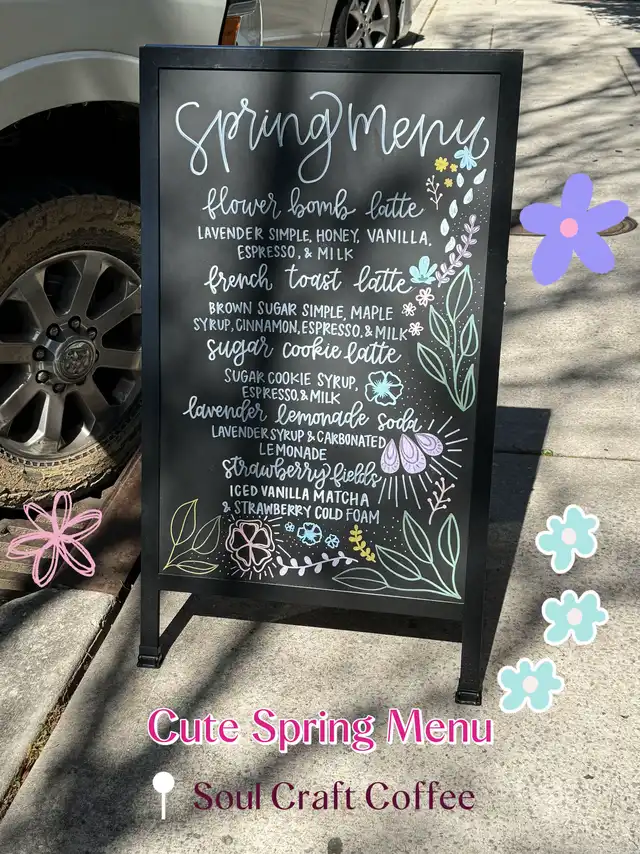 spring menu
flower bomb latte
LAVENDER SIMPLE, HONEY, VANILLA,
ESPRESSO, & MILK
french toast latte
BROWN SUGAR SIMPLE, MAPLE
SYRUP, CINNAMON, ESPRESSO, & MILK
sugar cookie latte
SUGAR COOKIE SYRUP,
ESPRESSO, & MILK
lavender lemonade soda
LAVENDER SYRUP & CARBONATED
LEMONADE
strawberry fields
ICED VANILLA MATCHA
& STRAWBERRY COLD FOAM
Cute Spring Menu
Soul Craft Coffee